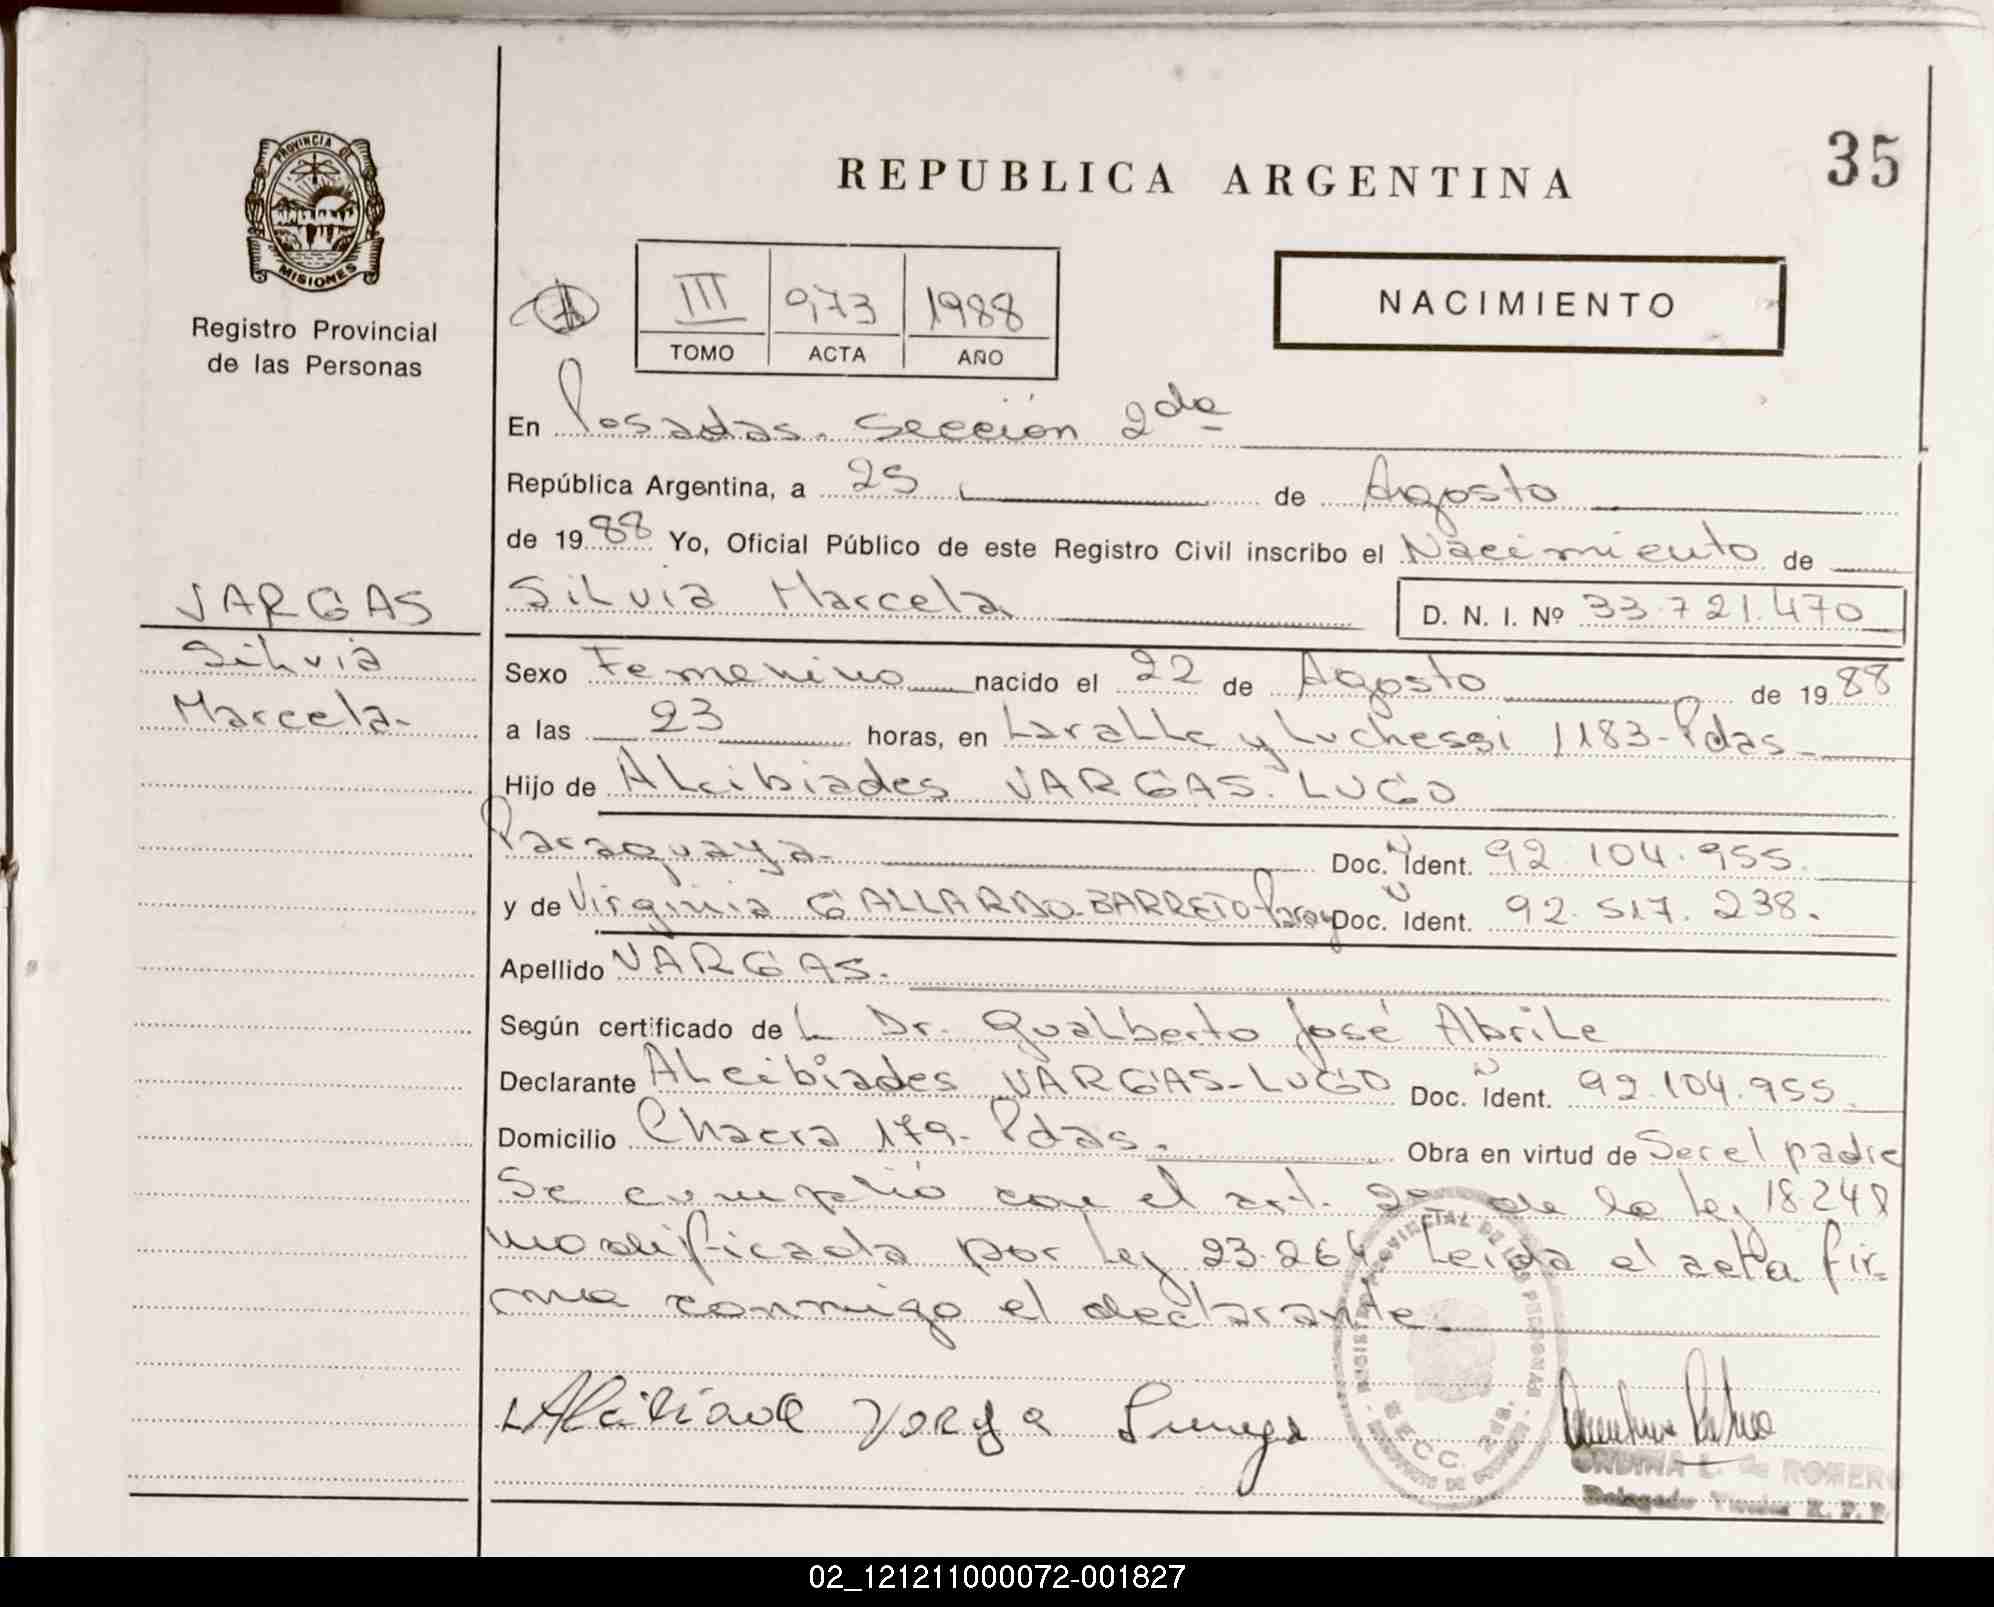 PROVINCIA DE
MISIONES
Registro Provincial
de las Personas
VARGAS
Silvia
Marcela.
REPUBLICA ARGENTINA
35
III 973 1988
TOMO ACTA AÑO
NACIMIENTO
En Posadas. Sección 2da
República Argentina, a 25 de Agosto
de 1988 Yo, Oficial Público de este Registro Civil inscribo el Nacimiento de
Silvia Marcela D. N. I. Nº 33.721.470
Sexo Femenino nacido el 22 de Agosto de 1988
a las 23 horas, en Laralle y Luchessi 1183-Pdas.
Hijo de Alcibiades VARGAS. LUGO
Paraguaya. Doc. Ident. 92.104.955.
y de Virginia GALLARDO-BARRETO Paray Doc. Ident. 92.517.238.
Apellido VARGAS.
Según certificado del Dr. Gualberto José Abrile
Declarante Alcibiades VARGAS-LUGO Doc. Ident. 92.104.955.
Domicilio Chacra 179- Pdas. Obra en virtud de Ser el padre
Se cumplió con el art. 2º de la ley 18.248
modificada por ley 23.264. Leida el acta fir-
ma conmigo el declarante.
REGISTRO PROVINCIAL DE LAS PERSONAS
SECC. 2da.
ONDINA L. de ROMERO
Delegado Titular R. P. P.
02_121211000072-001827